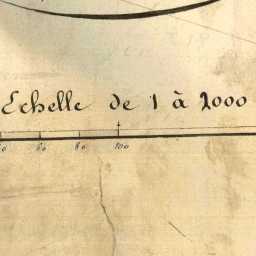 Echelle de 1 à 2000
60 80 100